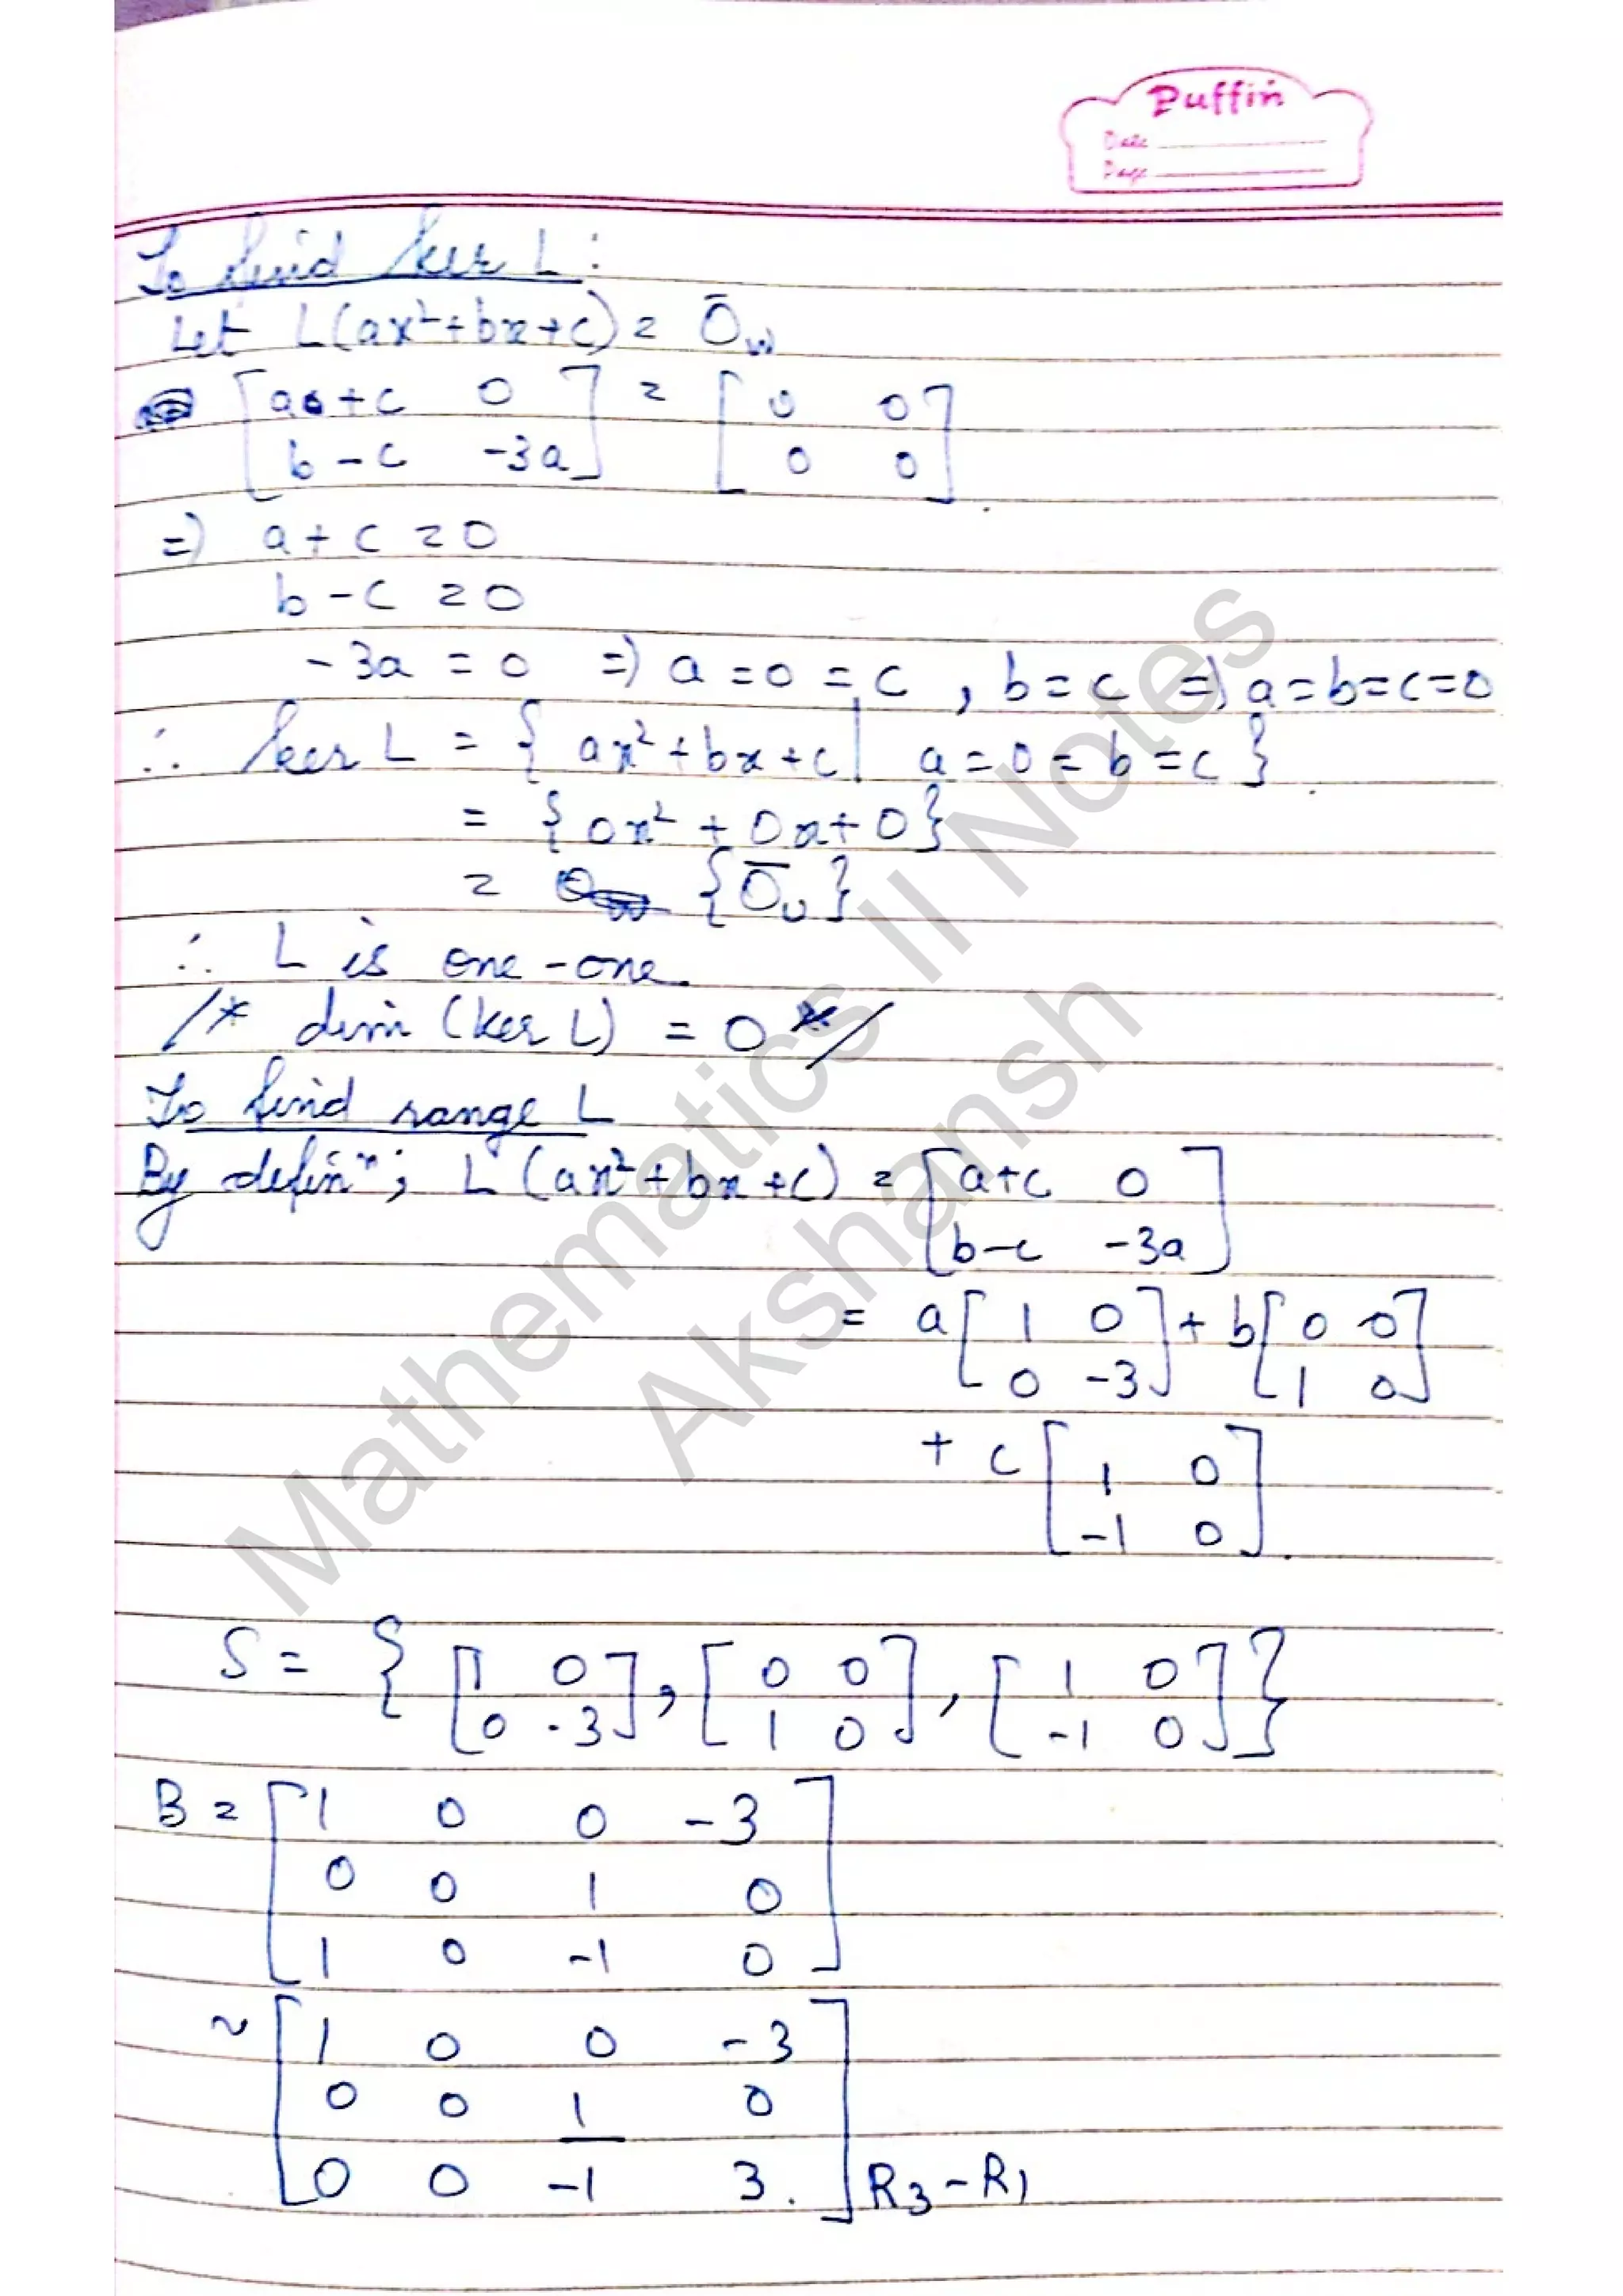 Puffin
Date
Page
To find ker L :
Let L(ax²+bx+c) = Ō_w
[a+c 0] = [0 0]
[b-c -3a] [0 0]
=) a + c = 0
b - c = 0
-3a = 0 =) a = 0 = c , b = c =) a=b=c=0
∴ ker L = { ax²+bx+c | a=0=b=c }
= {0x² + 0x+0}
= {Ō_v}
∴ L is one-one.
/* dim (ker L) = 0 */
To find range L
By definⁿ; L (ax²+bx+c) = [a+c 0]
[b-c -3a]
= a [1 0] + b [0 0]
[0 -3] [1 0]
+ c [1 0]
[-1 0]
S = { [1 0], [0 0], [1 0] }
[0 -3] [1 0] [-1 0]
B = [1 0 0 -3]
[0 0 1 0]
[1 0 -1 0]
~ [1 0 0 -3]
[0 0 1 0]
[0 0 -1 3.] R₃-R₁
Mathematics II Notes
Akshansh